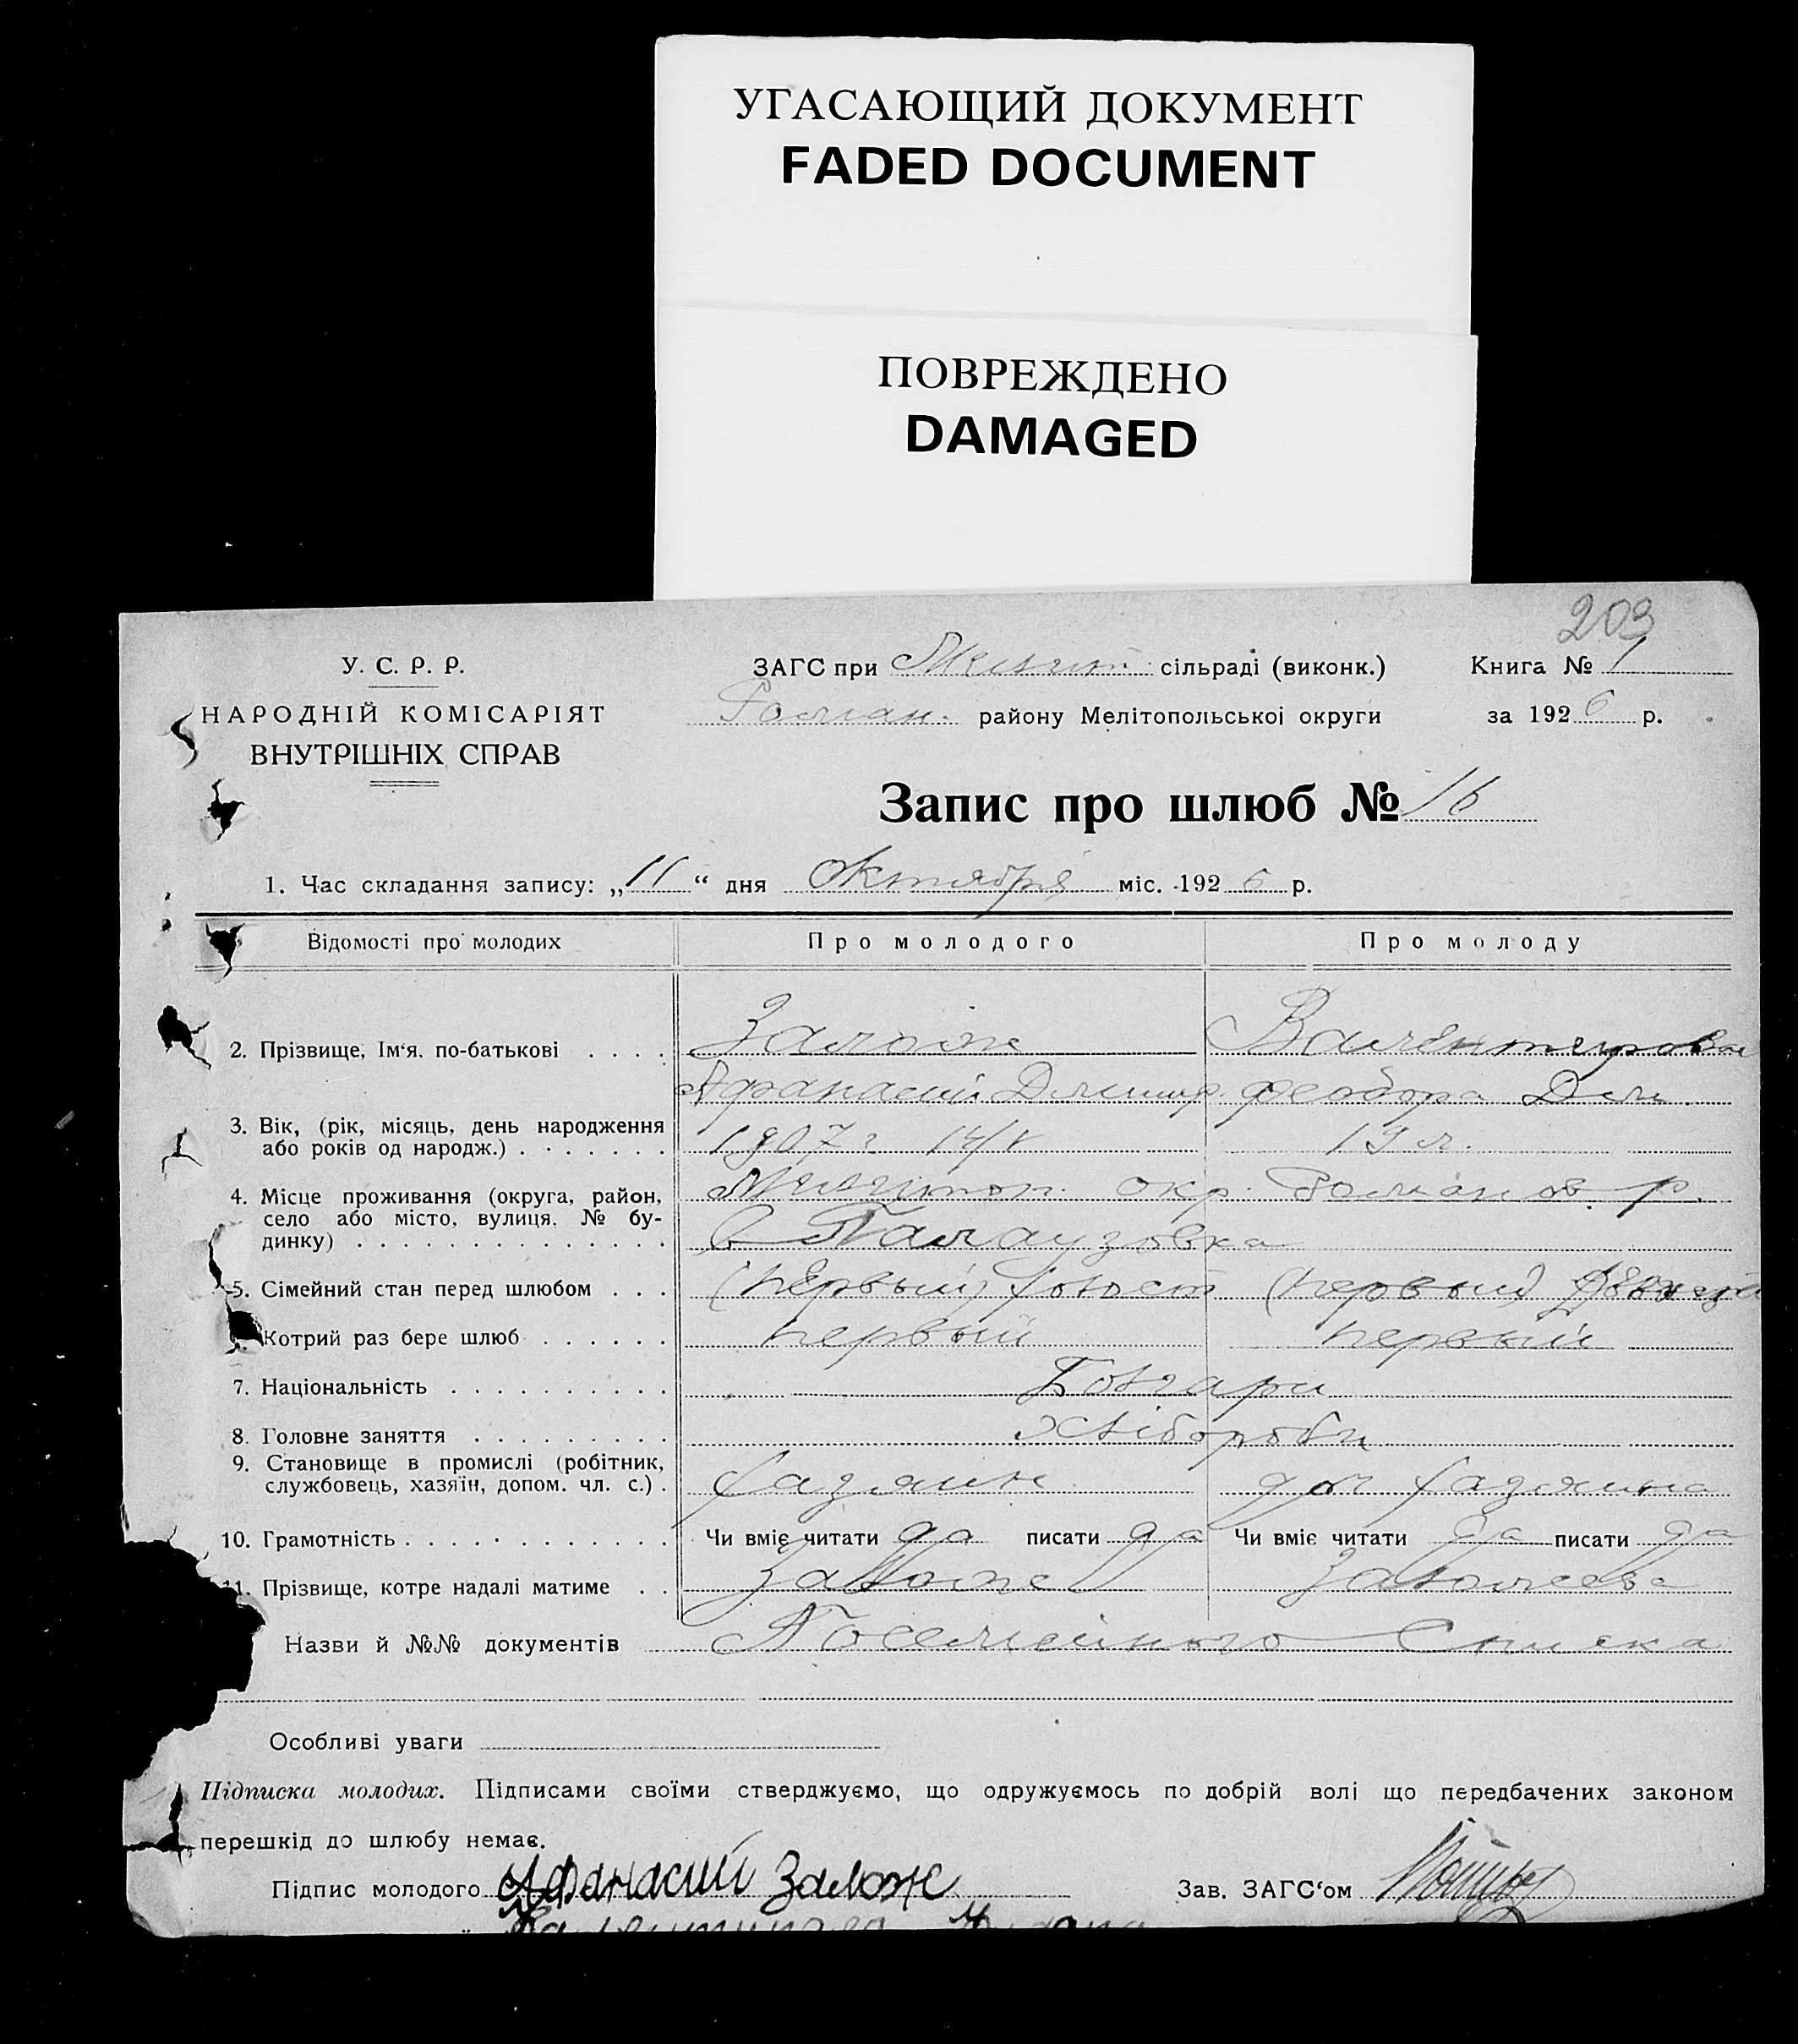 УГАСАЮЩИЙ ДОКУМЕНТ
FADED DOCUMENT
ПОВРЕЖДЕНО
DAMAGED
203
У. С. Р. Р.
НАРОДНІЙ КОМІСАРІЯТ
ВНУТРІШНІХ СПРАВ
ЗАГС при сільраді (виконк.)
Роман. району Мелітопольської округи
Книга № 1
за 1926 р.
Запис про шлюб № 16
1. Час складання запису: „11“ дня Октября міс. 1926 р.
Відомості про молодих Про молодого Про молоду
2. Прізвище, Ім‘я, по-батькові . . . . Залож
Афанасий Дмитр. Феодора Дем.
3. Вік, (рік, місяць, день народження
або років од народж.) . . . . . . . 1907 г 19 л.
4. Місце проживання (округа, район,
село або місто, вулиця, № бу-
динку) . . . . . . . . . . . . . .
Мелитоп. окр. Романов. р.
с Палаузовка
5. Сімейний стан перед шлюбом . . . (первый) холост (первый) Девица
Котрий раз бере шлюб . . . . . . первый первый
7. Національність . . . . . . . . . . Болгари
8. Головне заняття . . . . . . . . . Хлібороби
9. Становище в промислі (робітник,
службовець, хазяїн, допом. чл. с.) . Хазяин доч Хазяина
10. Грамотність . . . . . . . . . . . . Чи вміє читати да писати да Чи вміє читати да писати да
11. Прізвище, котре надалі матиме . . Залож Заложева
Назви й №№ документів Посемейного Списка
Особливі уваги
Підписка молодих. Підписами своїми стверджуємо, що одружуємось по добрій волі що передбачених законом
перешкід до шлюбу немає.
Підпис молодого Афанасий Залож Зав. ЗАГС‘ом